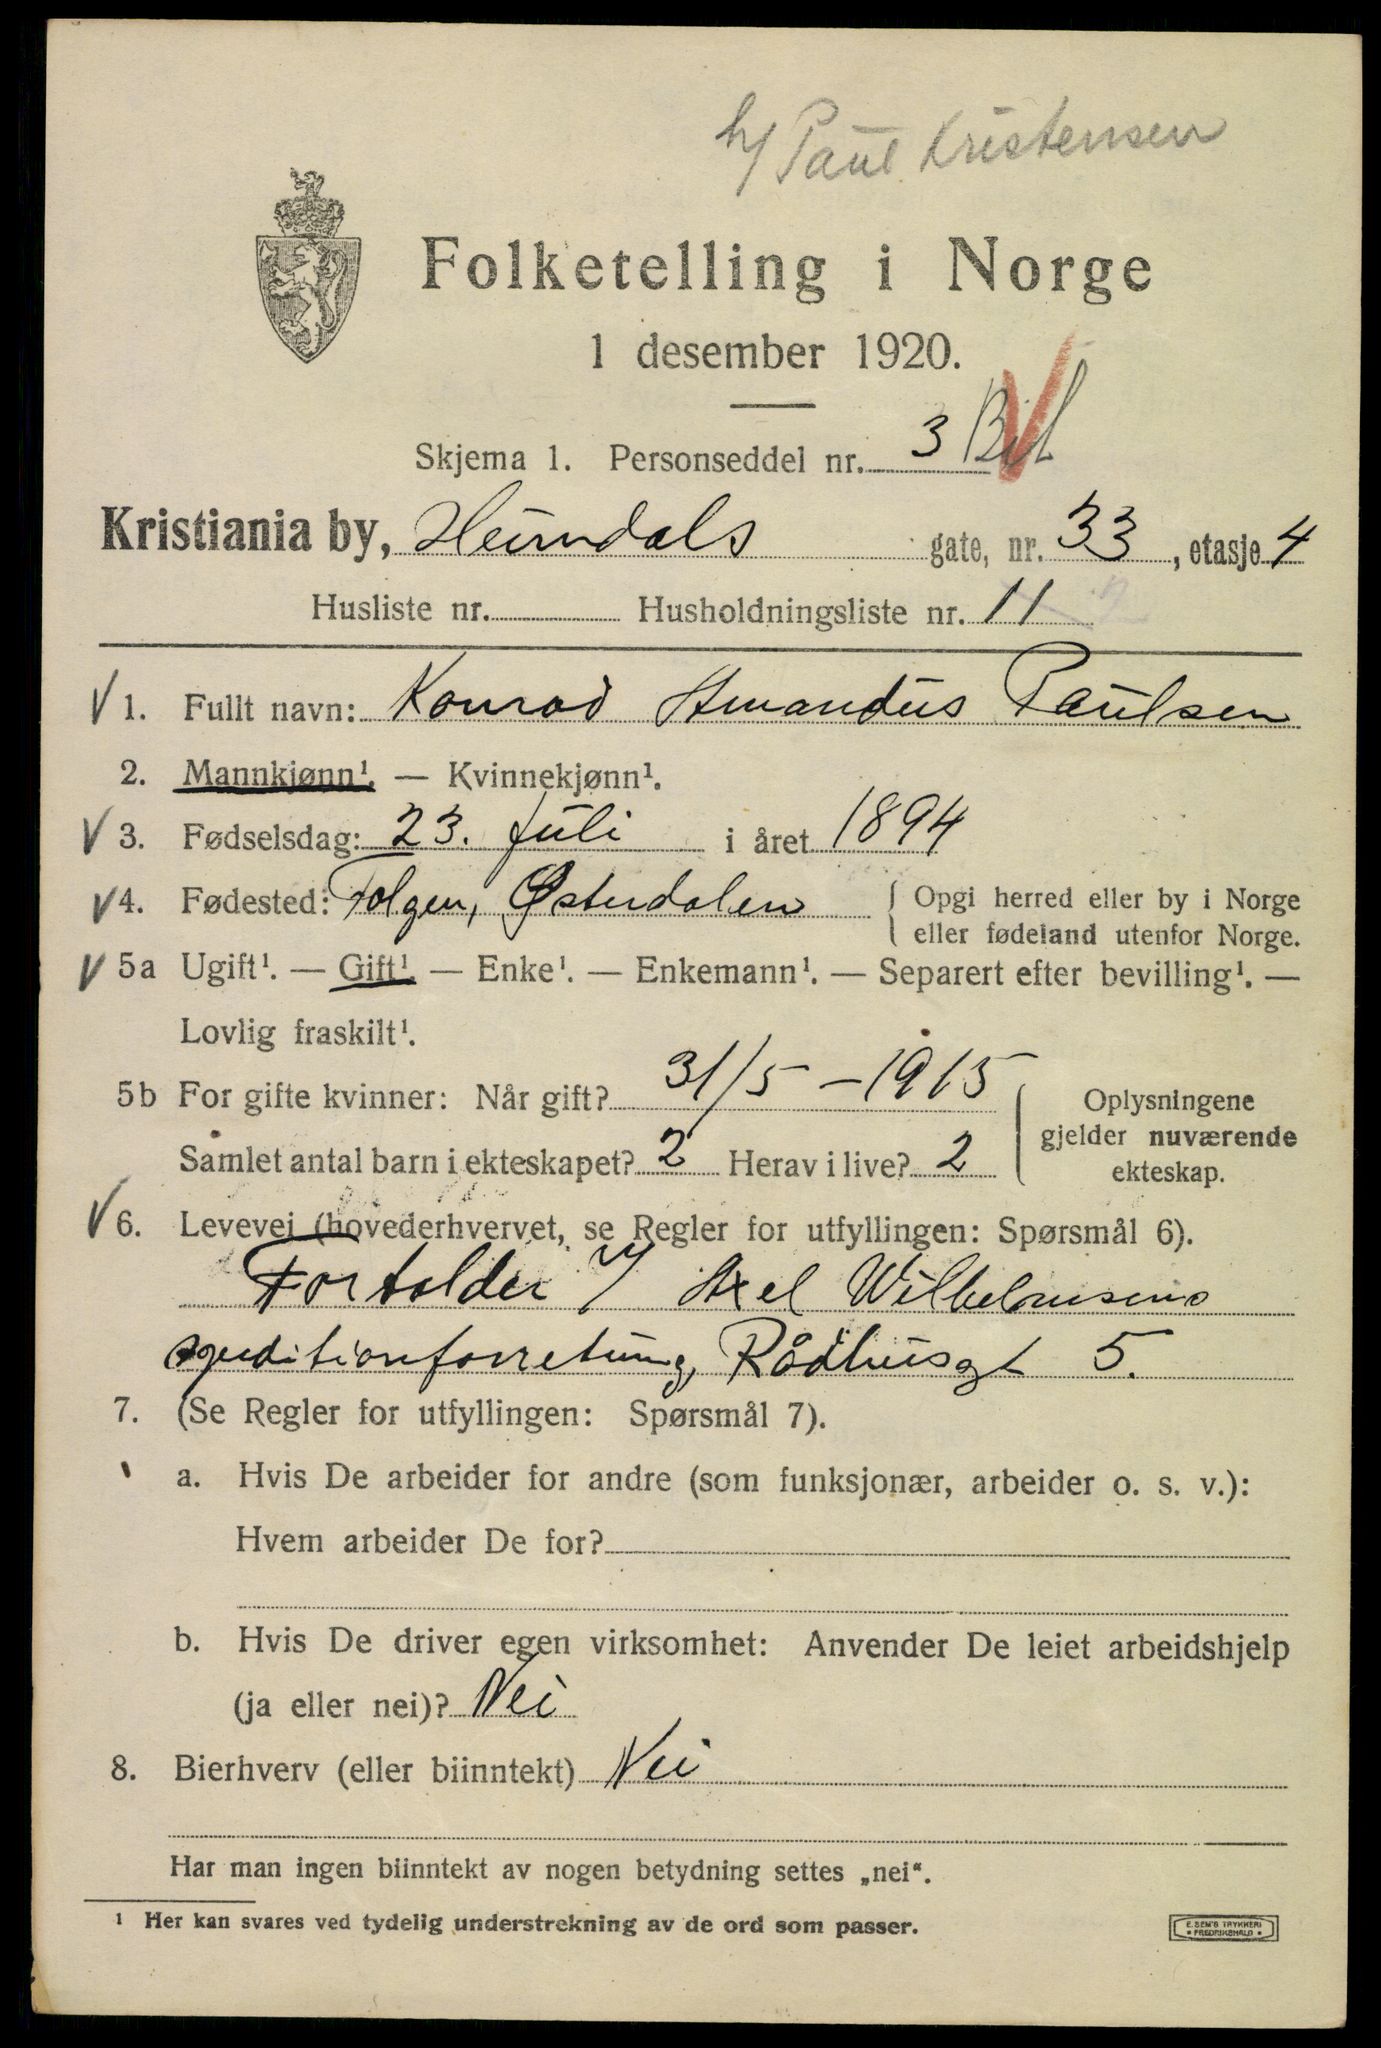 h/ Paul Kristensen
Folketelling i Norge
1 desember 1920.
Skjema 1. Personseddel nr. 3
Kristiania by, Heimdals gate, nr. 33, etasje 4
Husliste nr. Husholdningsliste nr. 11
1. Fullt navn: Konrad Amandus Paulsen
2. Mannkjønn¹. — Kvinnekjønn¹.
3. Fødselsdag: 23. Juli i året 1894
4. Fødested: Tolgen, Østerdalen { Opgi herred eller by i Norge
eller fødeland utenfor Norge.
5a Ugift¹. — Gift¹ — Enke¹. — Enkemann¹. — Separert efter bevilling¹. —
Lovlig fraskilt¹.
5b For gifte kvinner: Når gift? 31/5 – 1915
Samlet antal barn i ekteskapet? 2 Herav i live? 2
Oplysningene
gjelder nuværende
ekteskap.
6. Levevei (hovederhvervet, se Regler for utfyllingen: Spørsmål 6).
Fortolder Axel Wilhelmsens
speditionforretning, Rådhusgt 5.
7. (Se Regler for utfyllingen: Spørsmål 7).
a. Hvis De arbeider for andre (som funksjonær, arbeider o. s. v.):
Hvem arbeider De for?
b. Hvis De driver egen virksomhet: Anvender De leiet arbeidshjelp
(ja eller nei)? Nei
8. Bierhverv (eller biinntekt) Nei
Har man ingen biinntekt av nogen betydning settes „nei“.
¹ Her kan svares ved tydelig understrekning av de ord som passer.
E. SEM'S TRYKKERI
* FREDRIKSHALD *